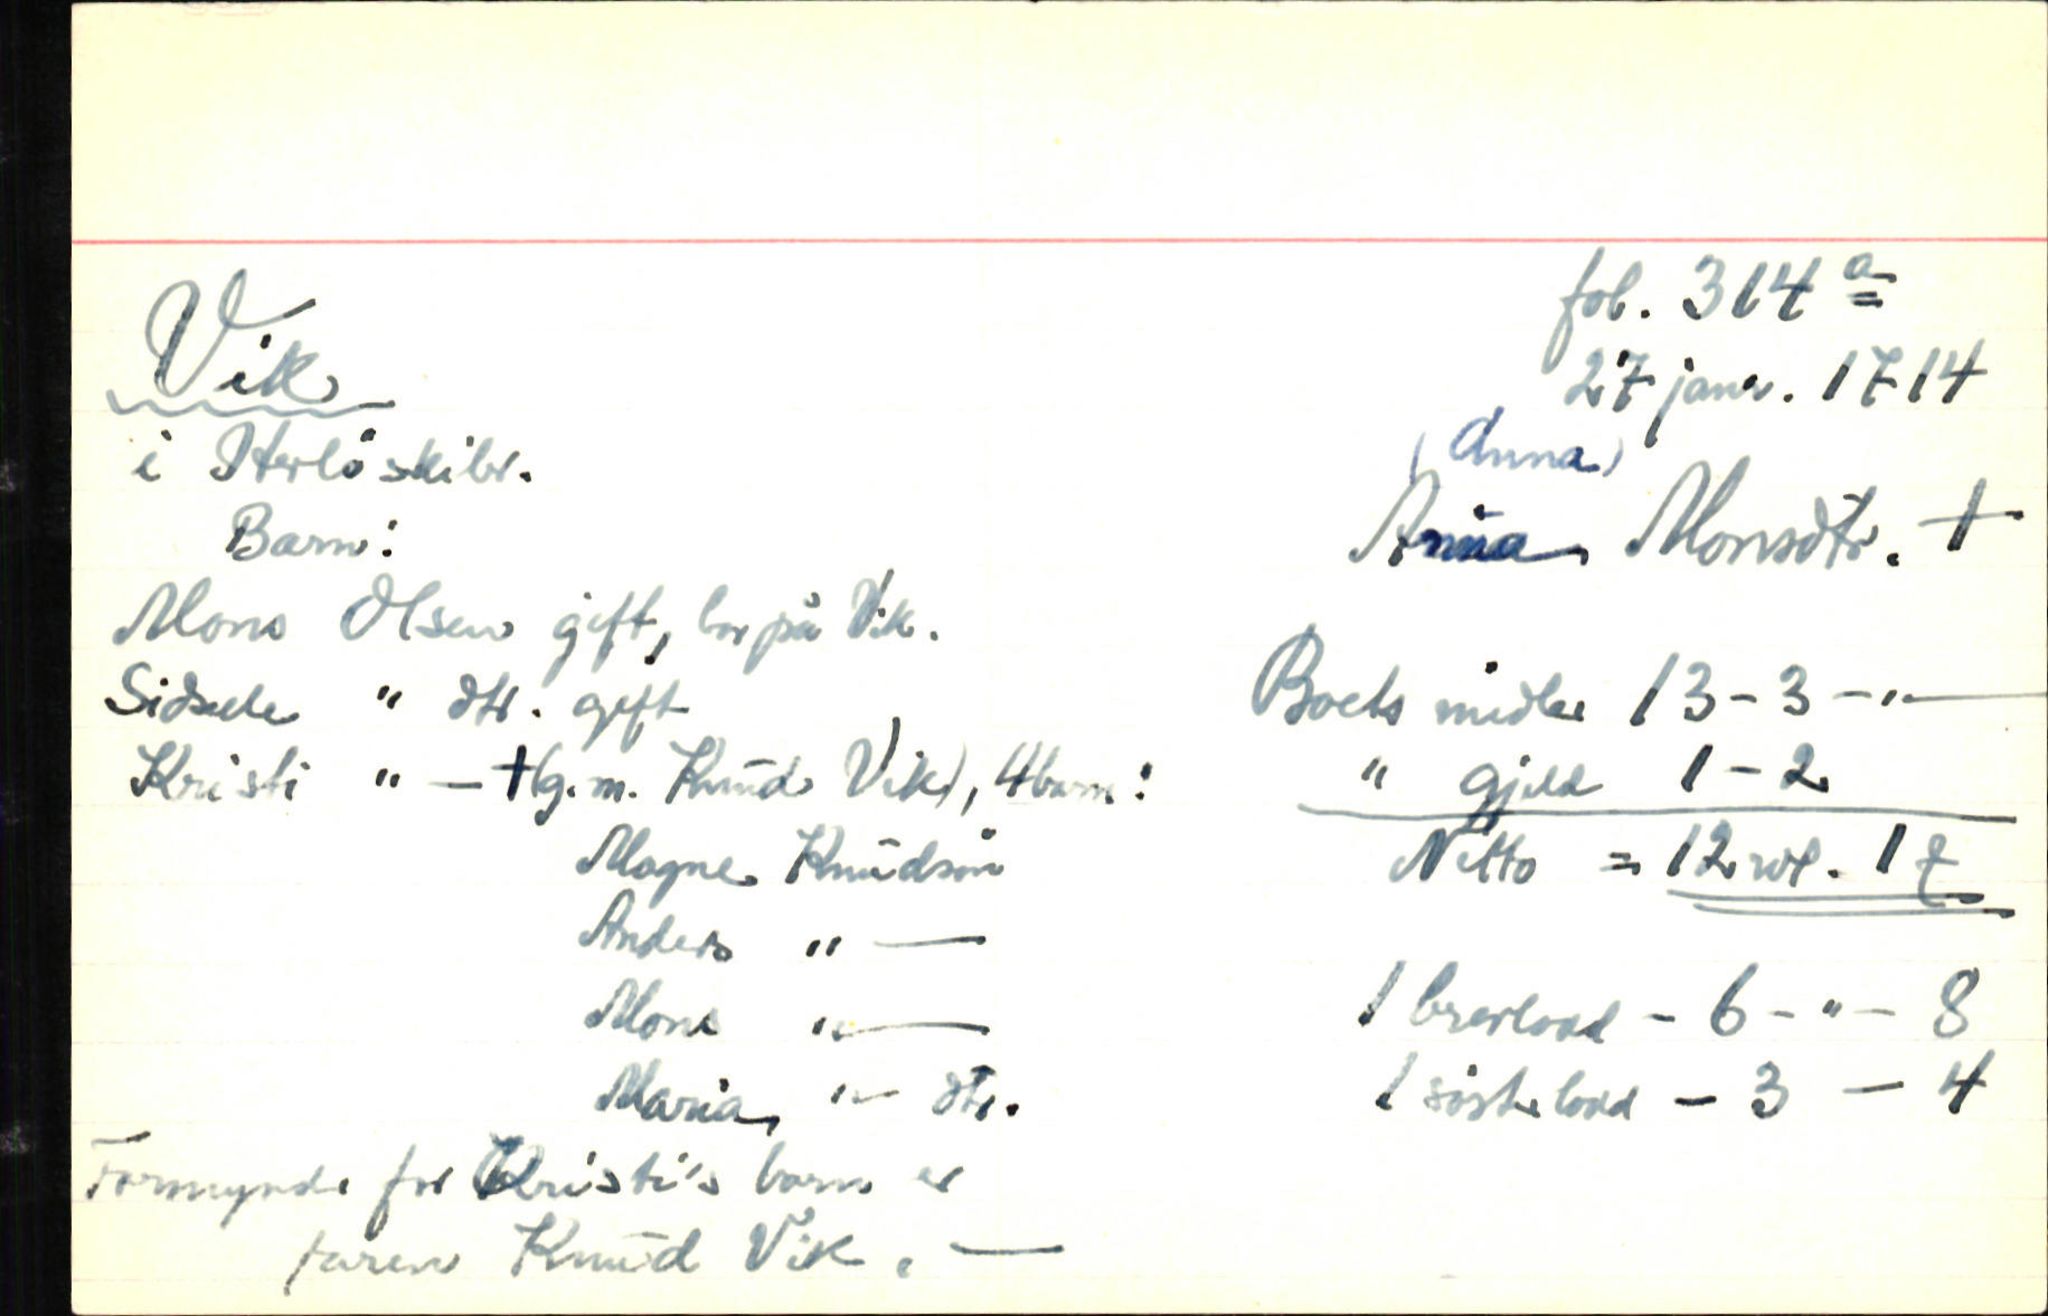 Vik
i Herlöskibr.
Barn:
Mons Olsen gift, bor på Vik.
Sidsele " dtr. gift
Kristi " — † (g. m. Knud Vik), 4 barn:
Magne Knudson
Anders " —
Mons " —
Maria " — dtr.
Formynder for Kristi's barn er
faren Knud Vik. —
fol. 314 a
27 janr. 1714
(Anna)
Anna Monsdtr. †
Boets midler 13 - 3 - " —
" gjeld 1 - 2
Netto = 12 rdl. 1 #
1 brorlodd - 6 - " - 8
1 søsterlodd - 3 - 4